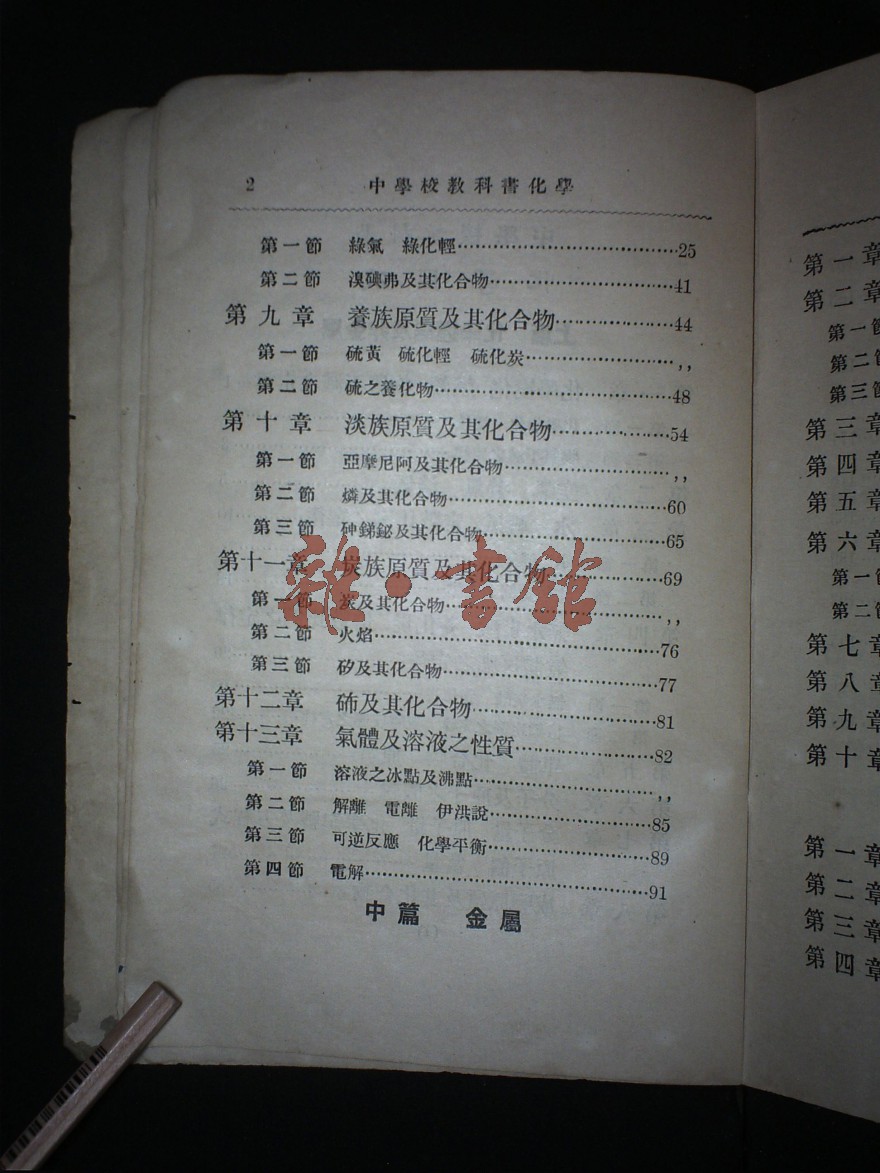 2 中學校教科書化學
第一節 綠氣 綠化輕…………25
第二節 溴碘弗及其化合物…………41
第九章 養族原質及其化合物…………44
第一節 硫黃 硫化輕 硫化炭…………,,
第二節 硫之養化物…………48
第十章 淡族原質及其化合物…………54
第一節 亞摩尼阿及其化合物…………,,
第二節 燐及其化合物…………60
第三節 砷銻鉍及其化合物…………65
第十一章 炭族原質及其化合物…………69
第一節 炭及其化合物…………,,
第二節 火焰…………76
第三節 矽及其化合物…………77
第十二章 䃽及其化合物…………81
第十三章 氣體及溶液之性質…………82
第一節 溶液之冰點及沸點…………,,
第二節 解離 電離 伊洪說…………85
第三節 可逆反應 化學平衡…………89
第四節 電解…………91
中篇 金屬
雜·書館
第一章
第二章
第一節
第二節
第三節
第三章
第四章
第五章
第六章
第一節
第二節
第七章
第八章
第九章
第十章
第一章
第二章
第三章
第四章